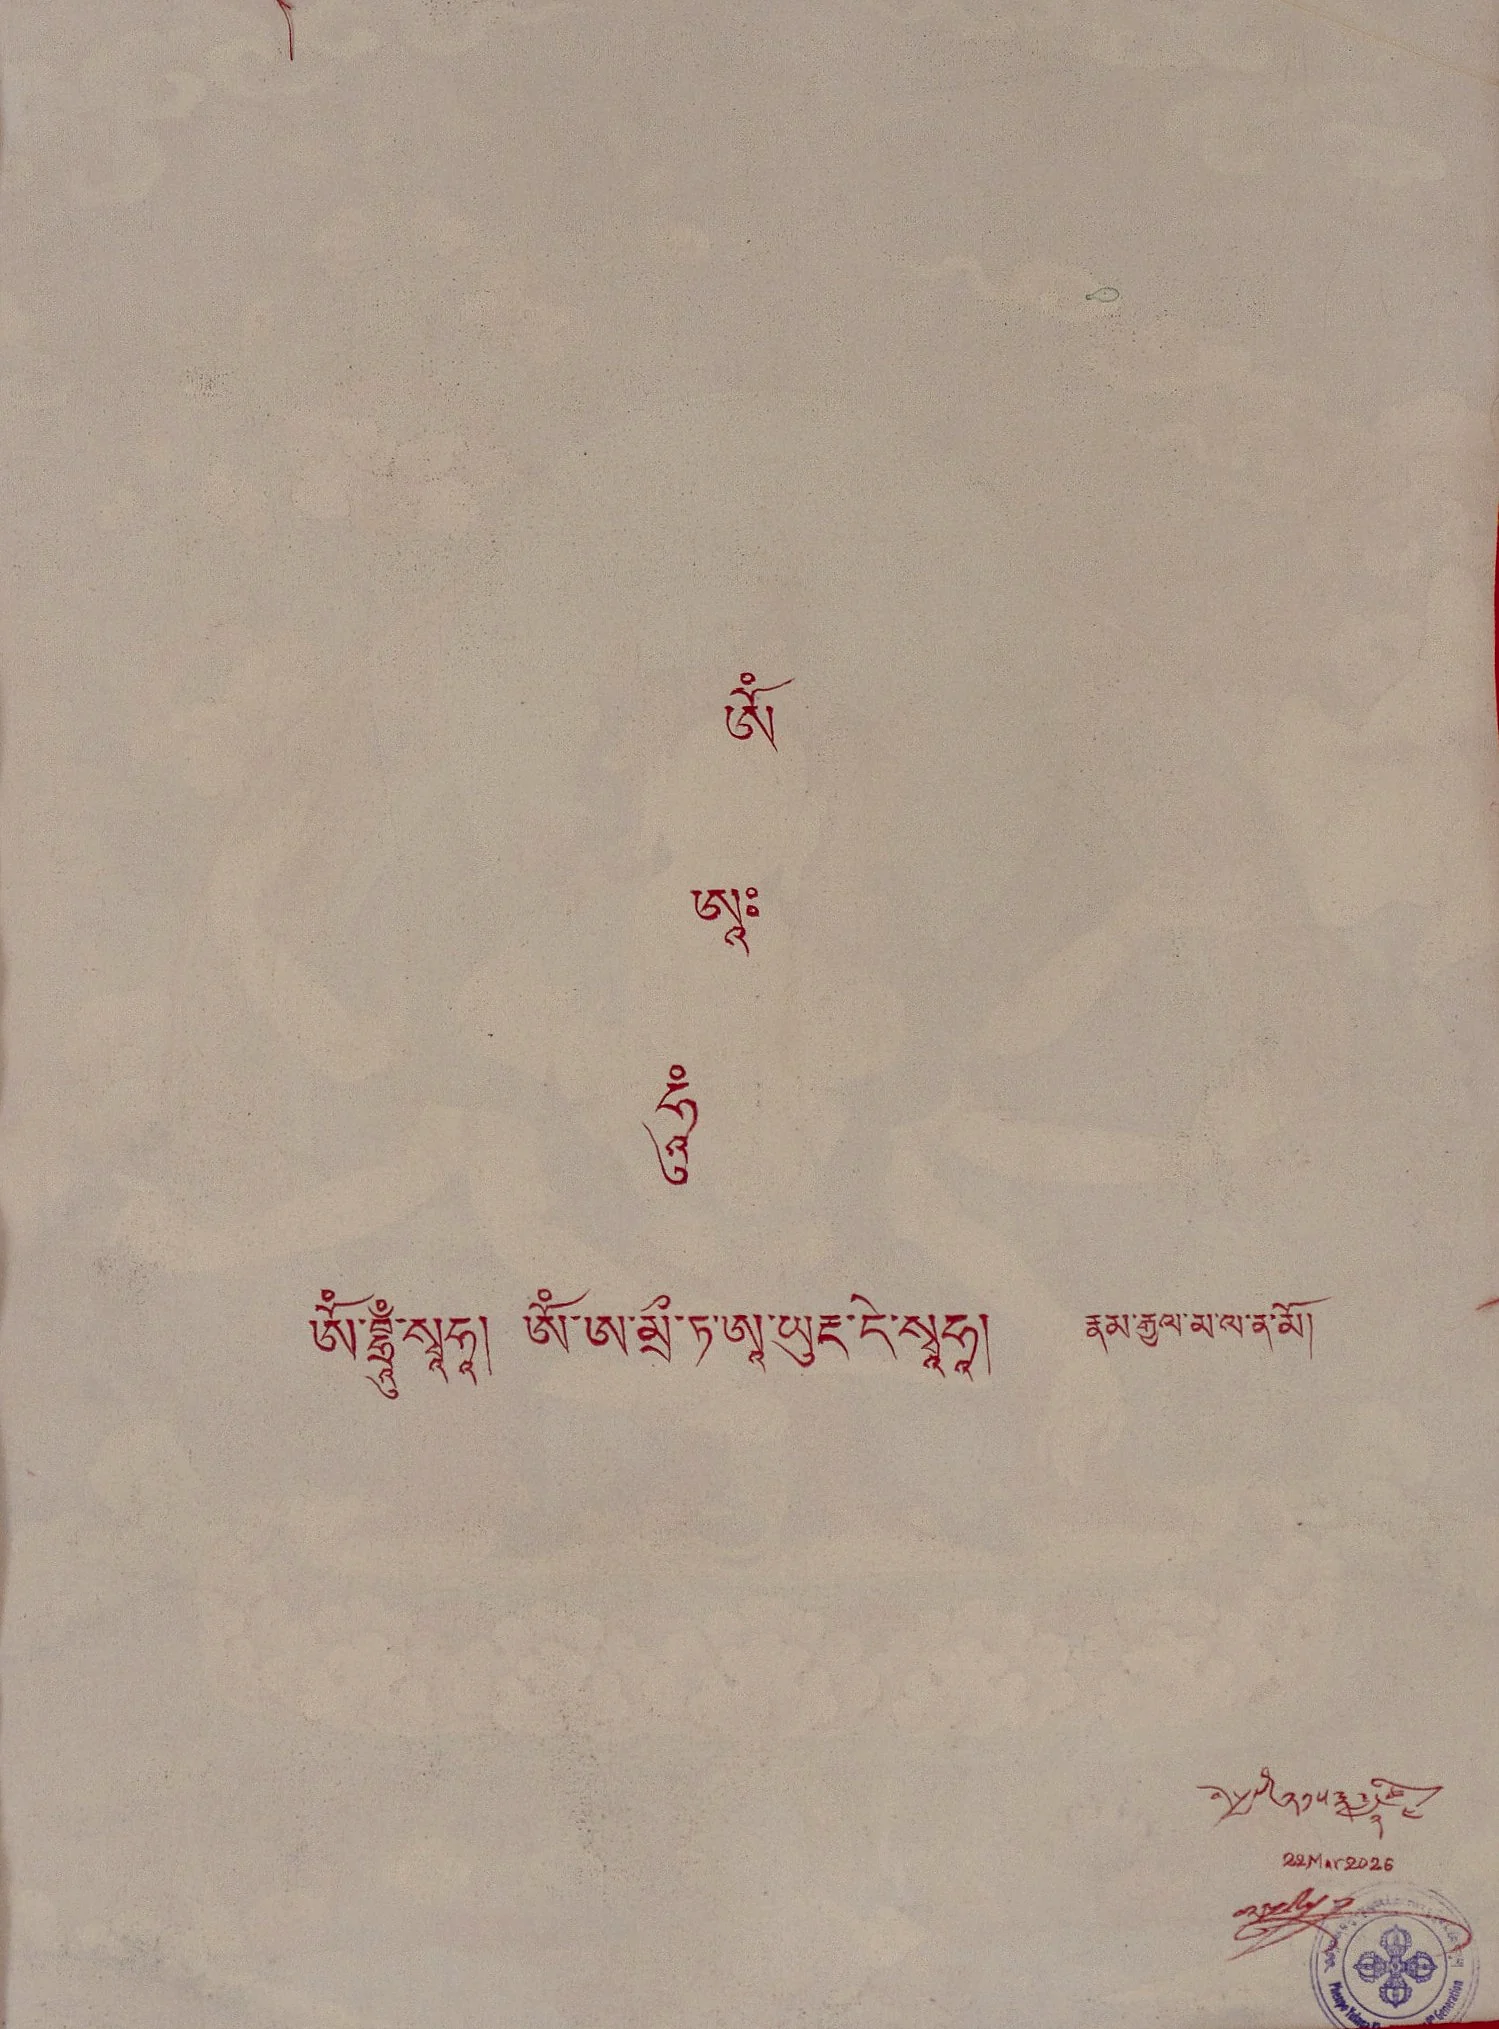 ཨོཾ
ཨཱཿ
ཧཱུྃ
ཨོཾ་བྷྲཱུྃ་སྭཱཧཱ། ཨོཾ་ཨ་མྲྀཾ་ཏ་ཨཱ་ཡུརྡ་དེ་སྭཱཧཱ། རྣམ་རྒྱལ་མ་ལ་ན་མོ།
22 Mar 2026